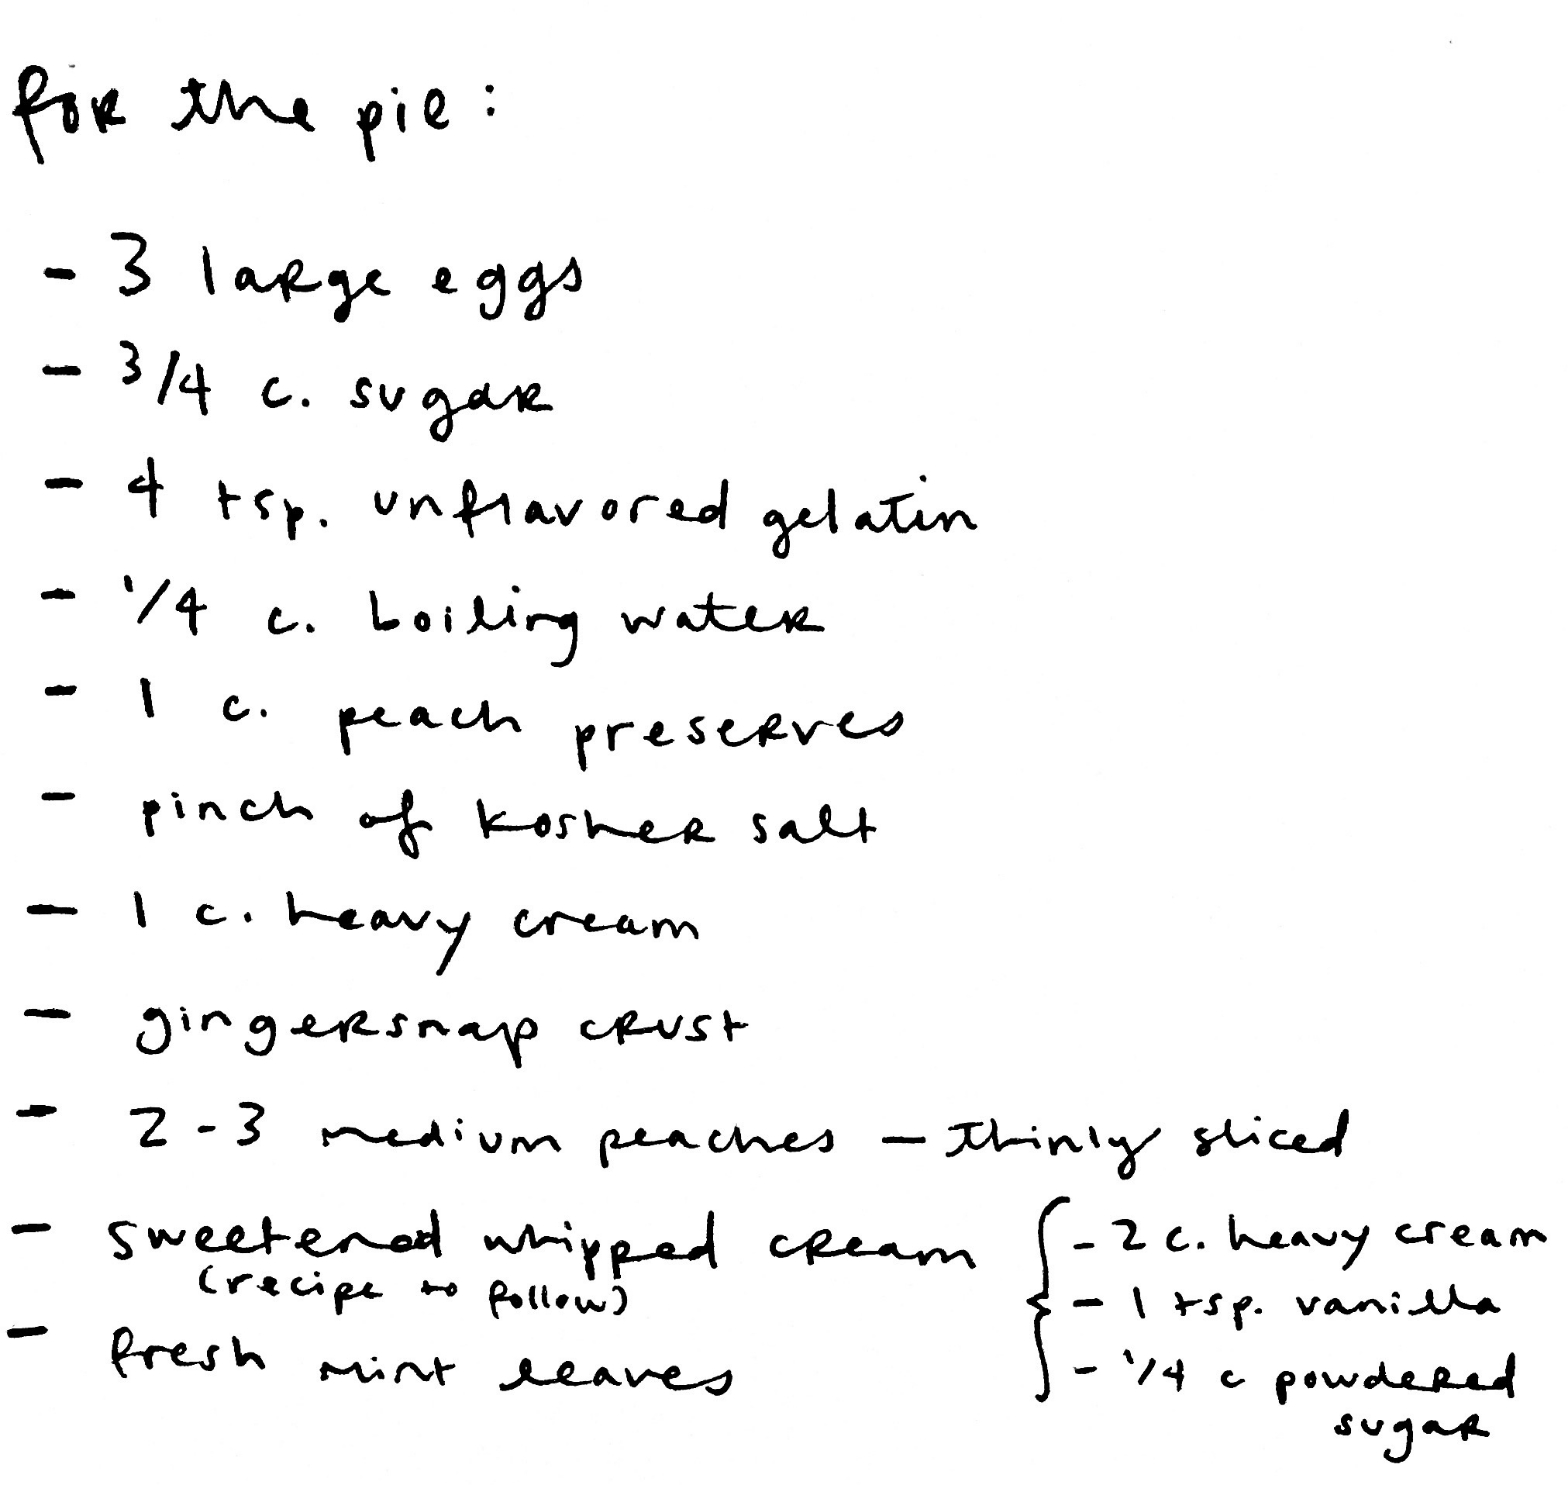 for the pie:
- 3 large eggs
- 3/4 c. sugar
- 4 tsp. unflavored gelatin
- 1/4 c. boiling water
- 1 c. peach preserves
- pinch of kosher salt
- 1 c. heavy cream
- gingersnap crust
- 2-3 medium peaches - thinly sliced
- sweetened whipped cream
(recipe to follow)
- 2 c. heavy cream
- 1 tsp. vanilla
- 1/4 c powdered
sugar
- fresh mint leaves